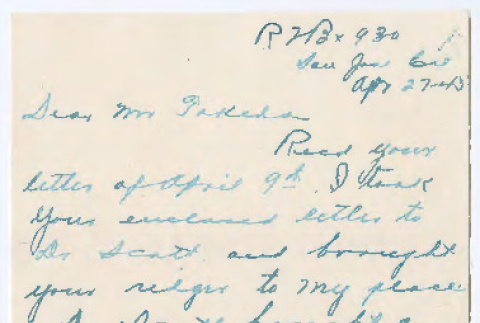 R 2 Bx 930
San Jose Cal
Apr 27-45
Dear Mr Takeda
Recd your
letter of April 9th. I took
your enclosed letter to
Dr Scott and brought
your to my place